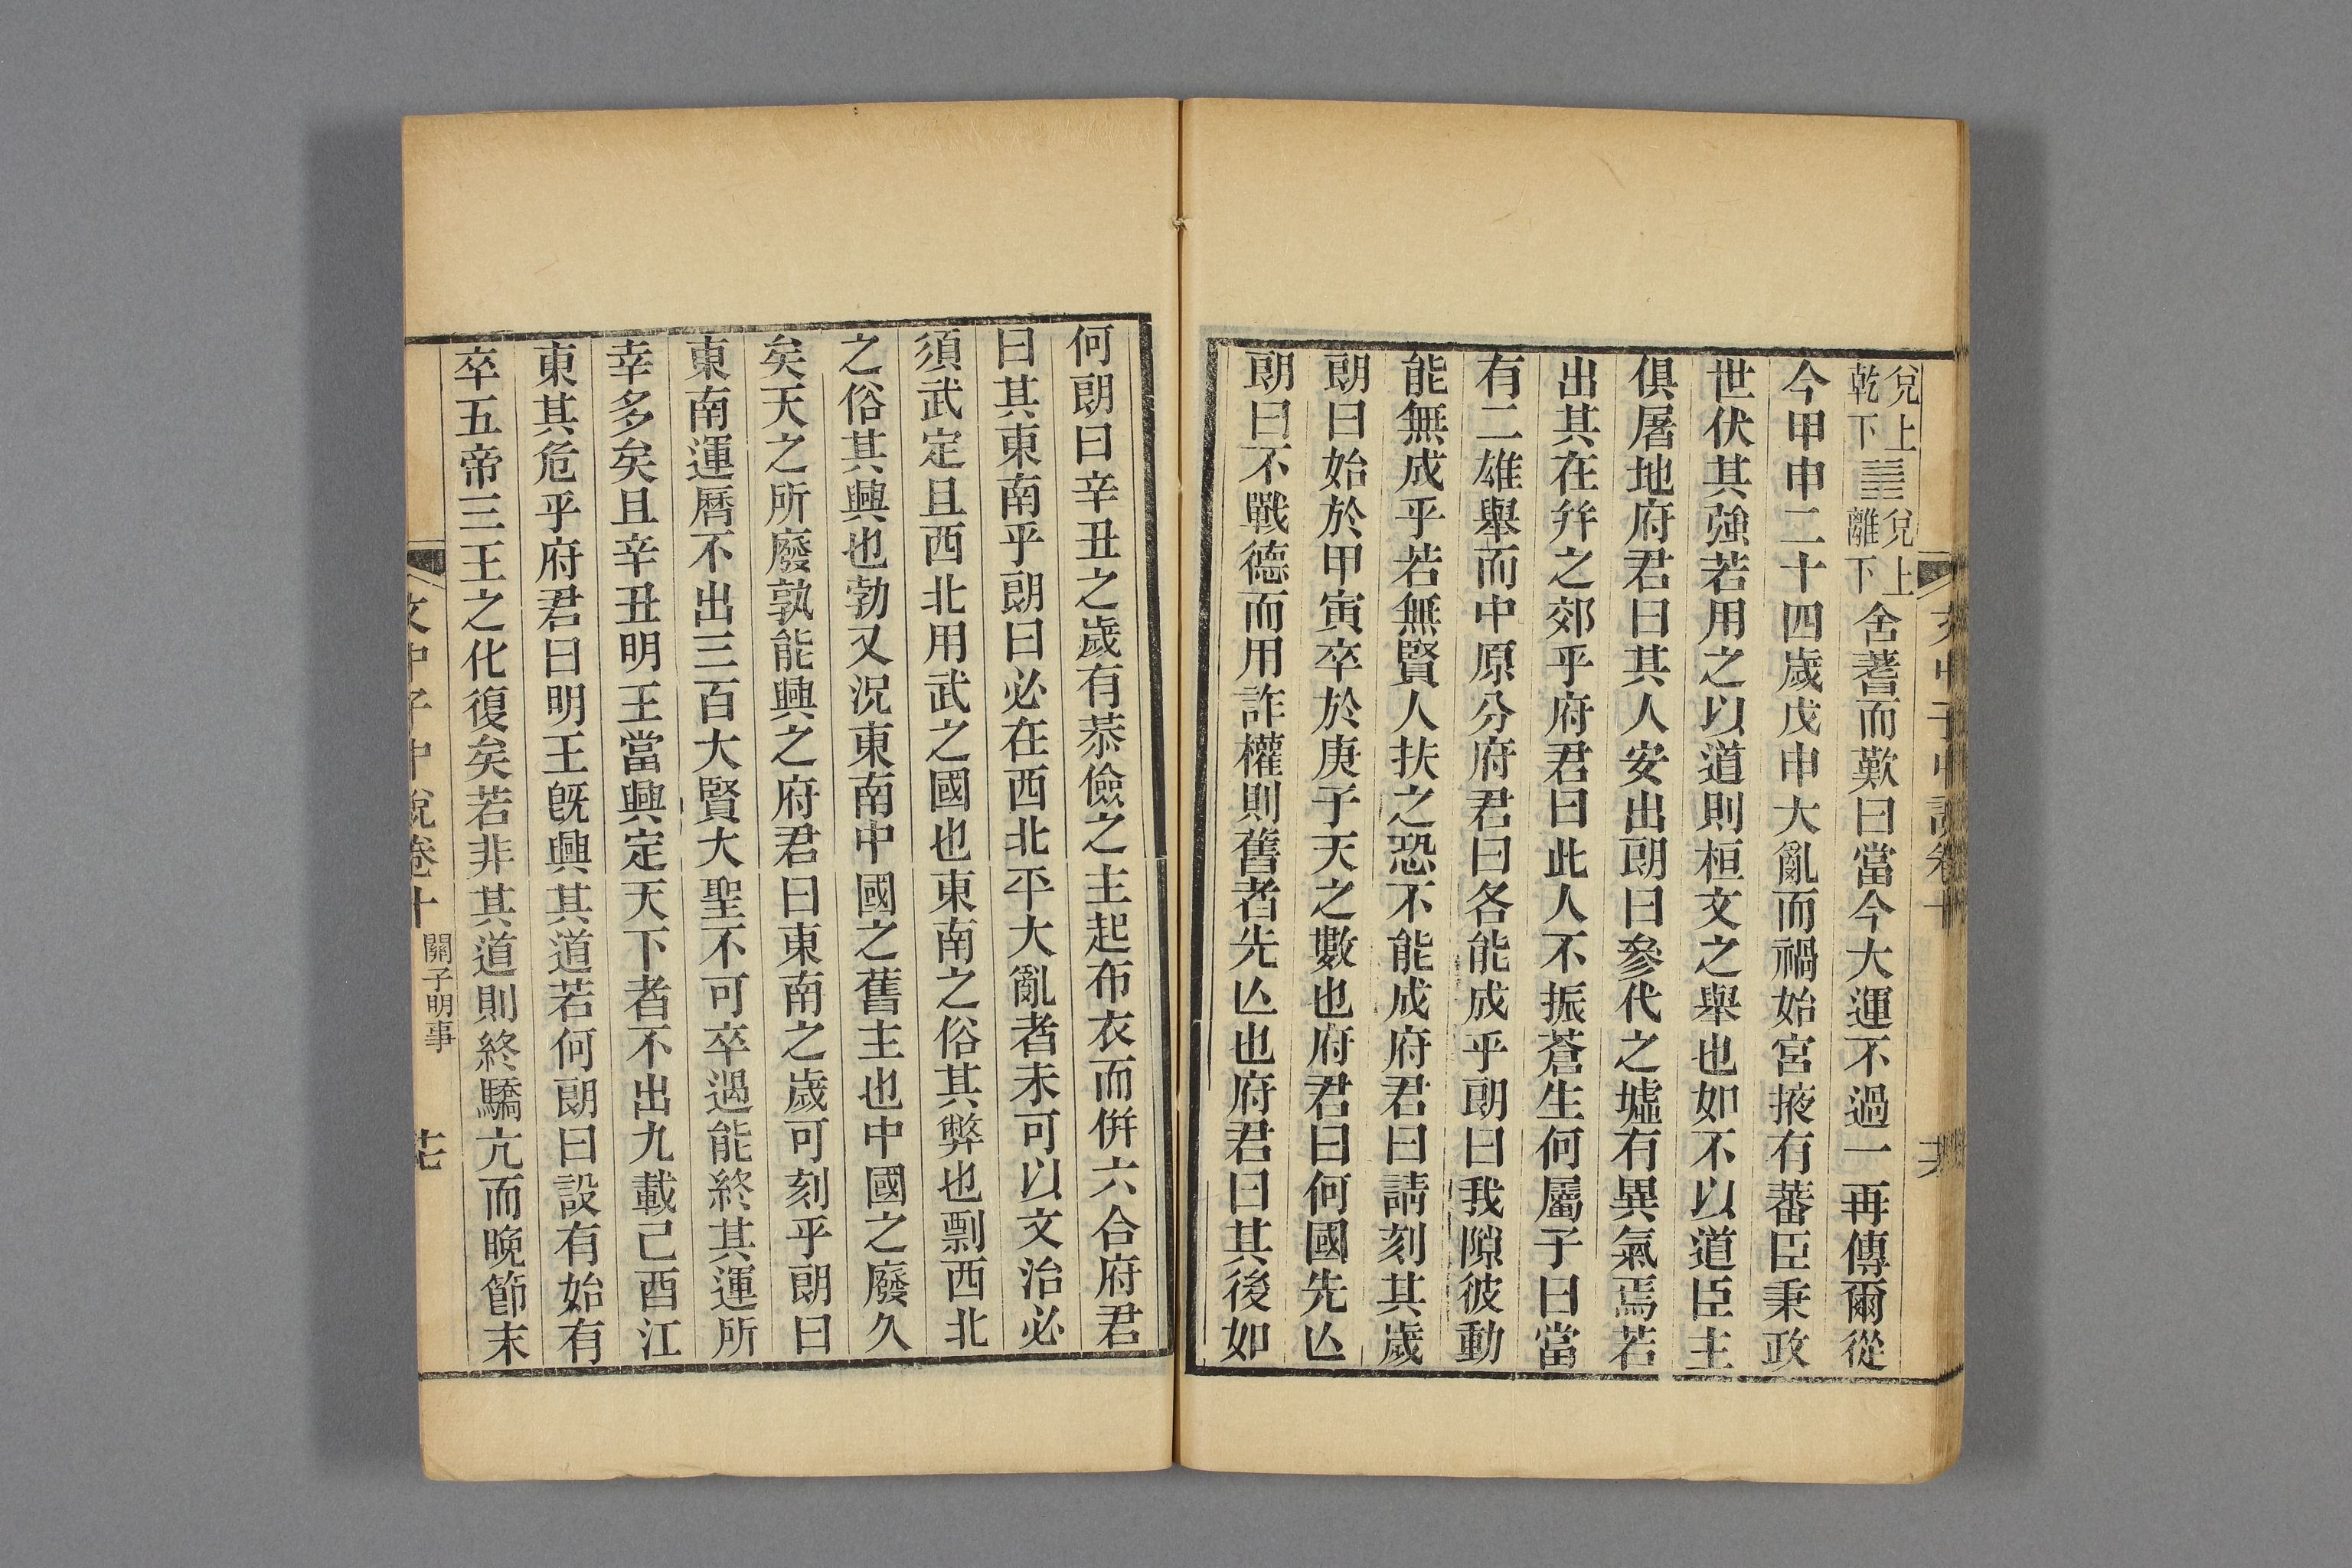 兌上乾下䷰兌上離下舍蓍而歎曰當今大運不過一再傳爾從
今甲申二十四歲戊申大亂而禍始宮掖有蕃臣秉政
世伏其強若用之以道則桓文之舉也如不以道臣主
俱屠地府君曰其人安出朗曰參代之墟有異氣焉若
出其在并之郊乎府君曰此人不振蒼生何屬子曰當
有二雄舉而中原分府君曰各能成乎朗曰我隙彼動
能無成乎若無賢人扶之恐不能成府君曰請刻其歲
朗曰始於甲寅卒於庚子天之數也府君曰何國先亾
朗曰不戰德而用詐權則舊者先亾也府君曰其後如
何朗曰辛丑之歲有恭儉之主起布衣而併六合府君
曰其東南乎朗曰必在西北平大亂者未可以文治必
須武定且西北用武之國也東南之俗其弊也剽西北
之俗其興也勃又況東南中國之舊主也中國之廢久
矣天之所廢孰能興之府君曰東南之歲可刻乎朗曰
東南運曆不出三百大賢大聖不可卒遇能終其運所
幸多矣且辛丑明王當興定天下者不出九載己酉江
東其危乎府君曰明王既興其道若何朗曰設有始有
卒五帝三王之化復矣若非其道則終驕亢而晚節末
文中子中說卷十 關子明事